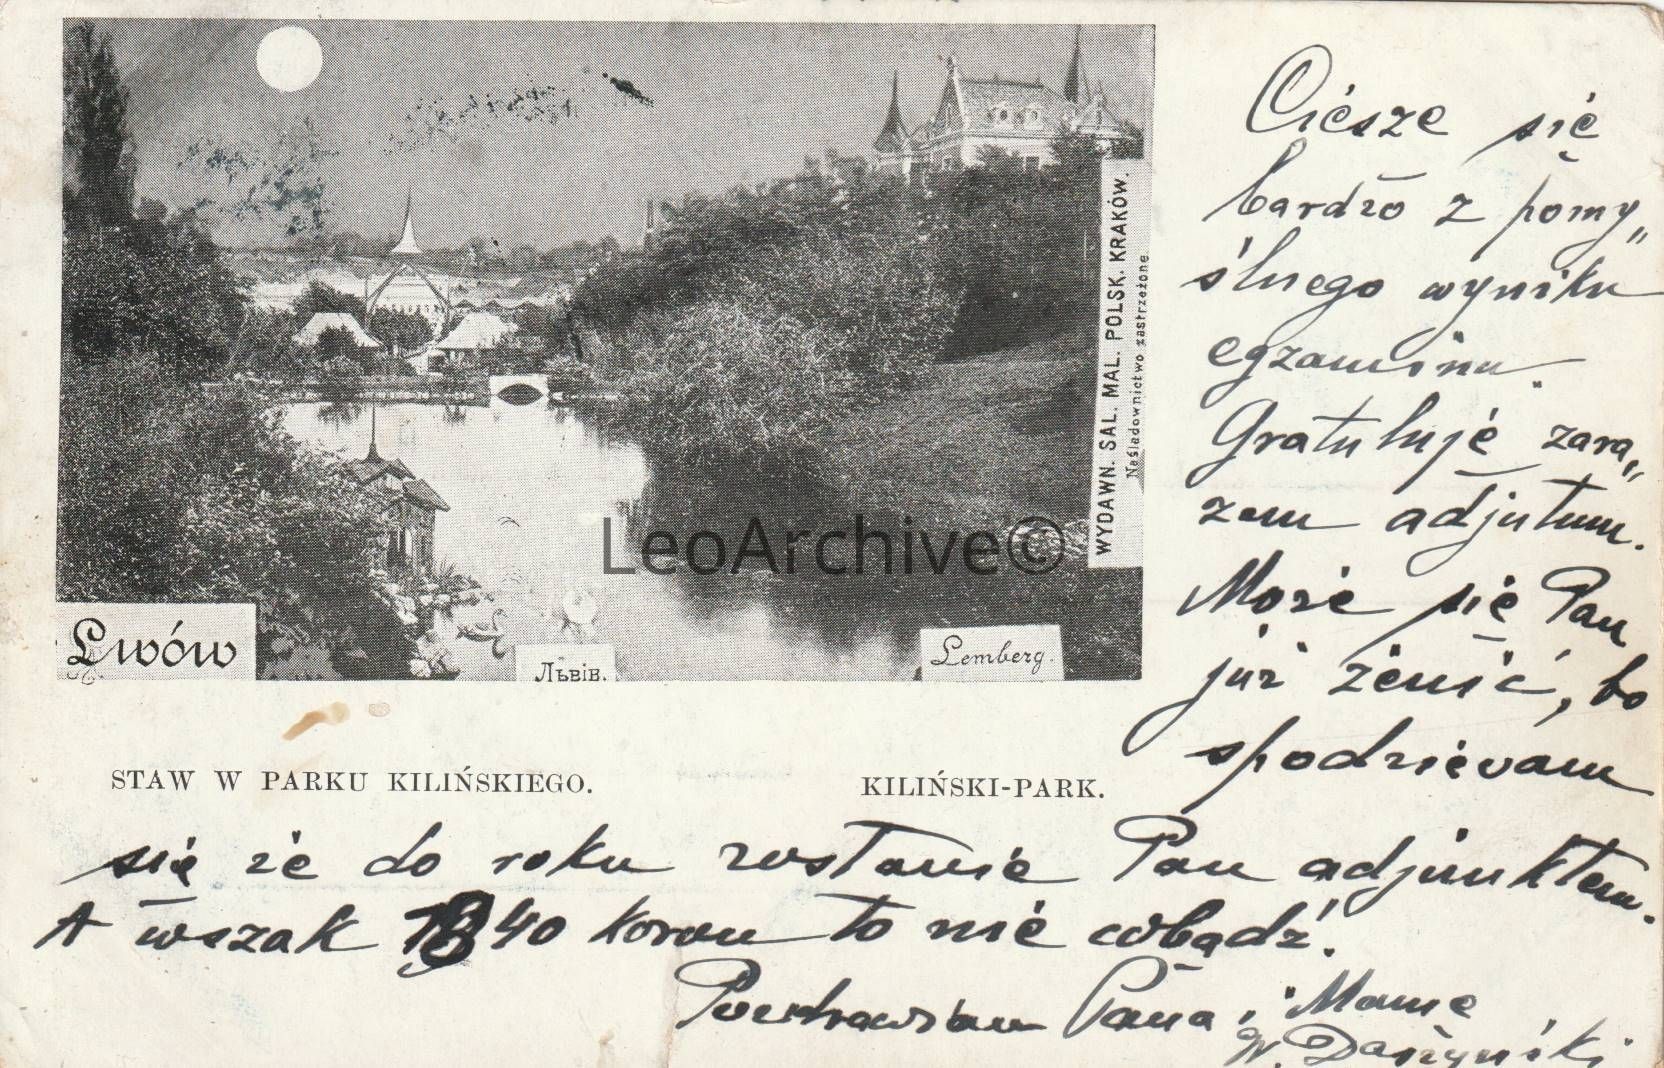 Cieszę się
bardzo z pomy„
ślnego wyniku
egzaminu.
Gratuluję zara„
zem adjutum.
Może się Pan
już żenić, bo
spodziewam
się że do roku zostanie Pan adjunktem.
A wszak 1840 koron to nie cobądź.
Pozdrawiam Pana i Mamę
W. Daszyński
WYDAWN. SAL. MAL. POLSK. KRAKÓW.
Naśladownictwo zastrzeżone.
LeoArchive©
Lwów
Львів.
Lemberg.
STAW W PARKU KILIŃSKIEGO.
KILIŃSKI-PARK.